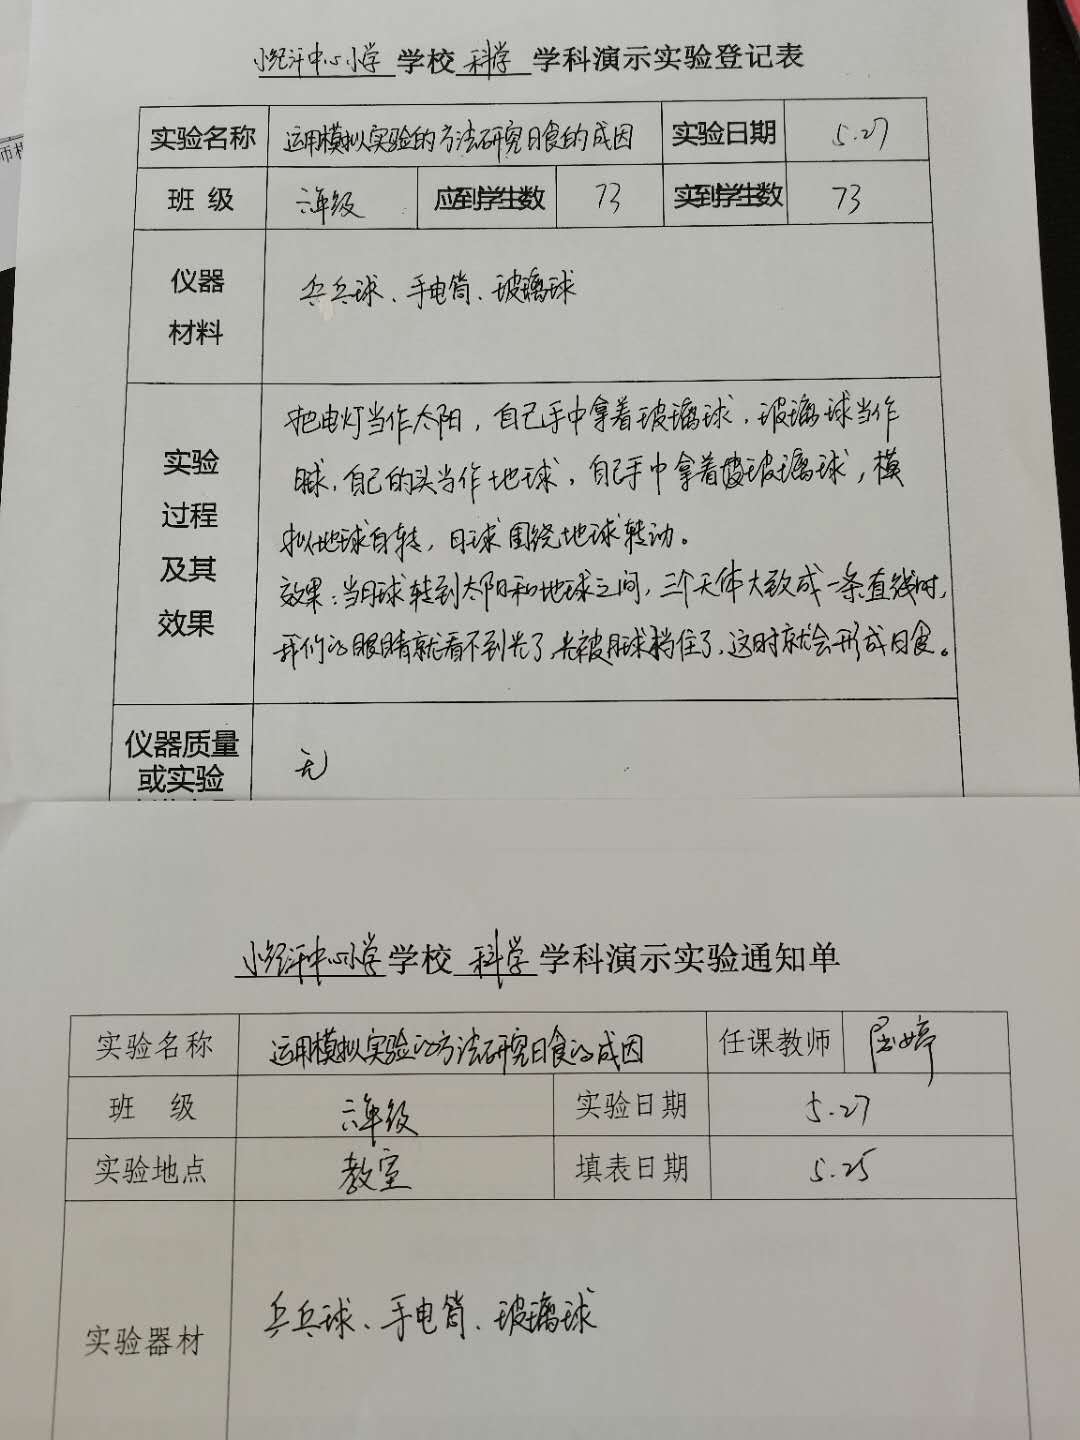 小纪汗中心小学 学校 科学 学科演示实验登记表
实验名称 运用模拟实验的方法研究日食的成因 实验日期 5.27
班 级 六年级 应到学生数 73 实到学生数 73
仪器
材料
乒乓球、手电筒、玻璃球
实验
过程
及其
效果
把电灯当作太阳，自己手中拿着玻璃球，玻璃球当作
月球，自己的头当作地球，自己手中拿着玻璃球，模
拟地球自转，月球围绕地球转动。
效果：当月球转到太阳和地球之间，三个天体大致成一条直线时，
我们的眼睛就看不到光了，光被月球挡住了，这时就会形成日食。
仪器质量
或实验
无
小纪汗中心小学 学校 科学 学科演示实验通知单
实验名称 运用模拟实验的方法研究日食的成因 任课教师 屈婷
班 级 六年级 实验日期 5.27
实验地点 教室 填表日期 5.25
实验器材 乒乓球、手电筒、玻璃球